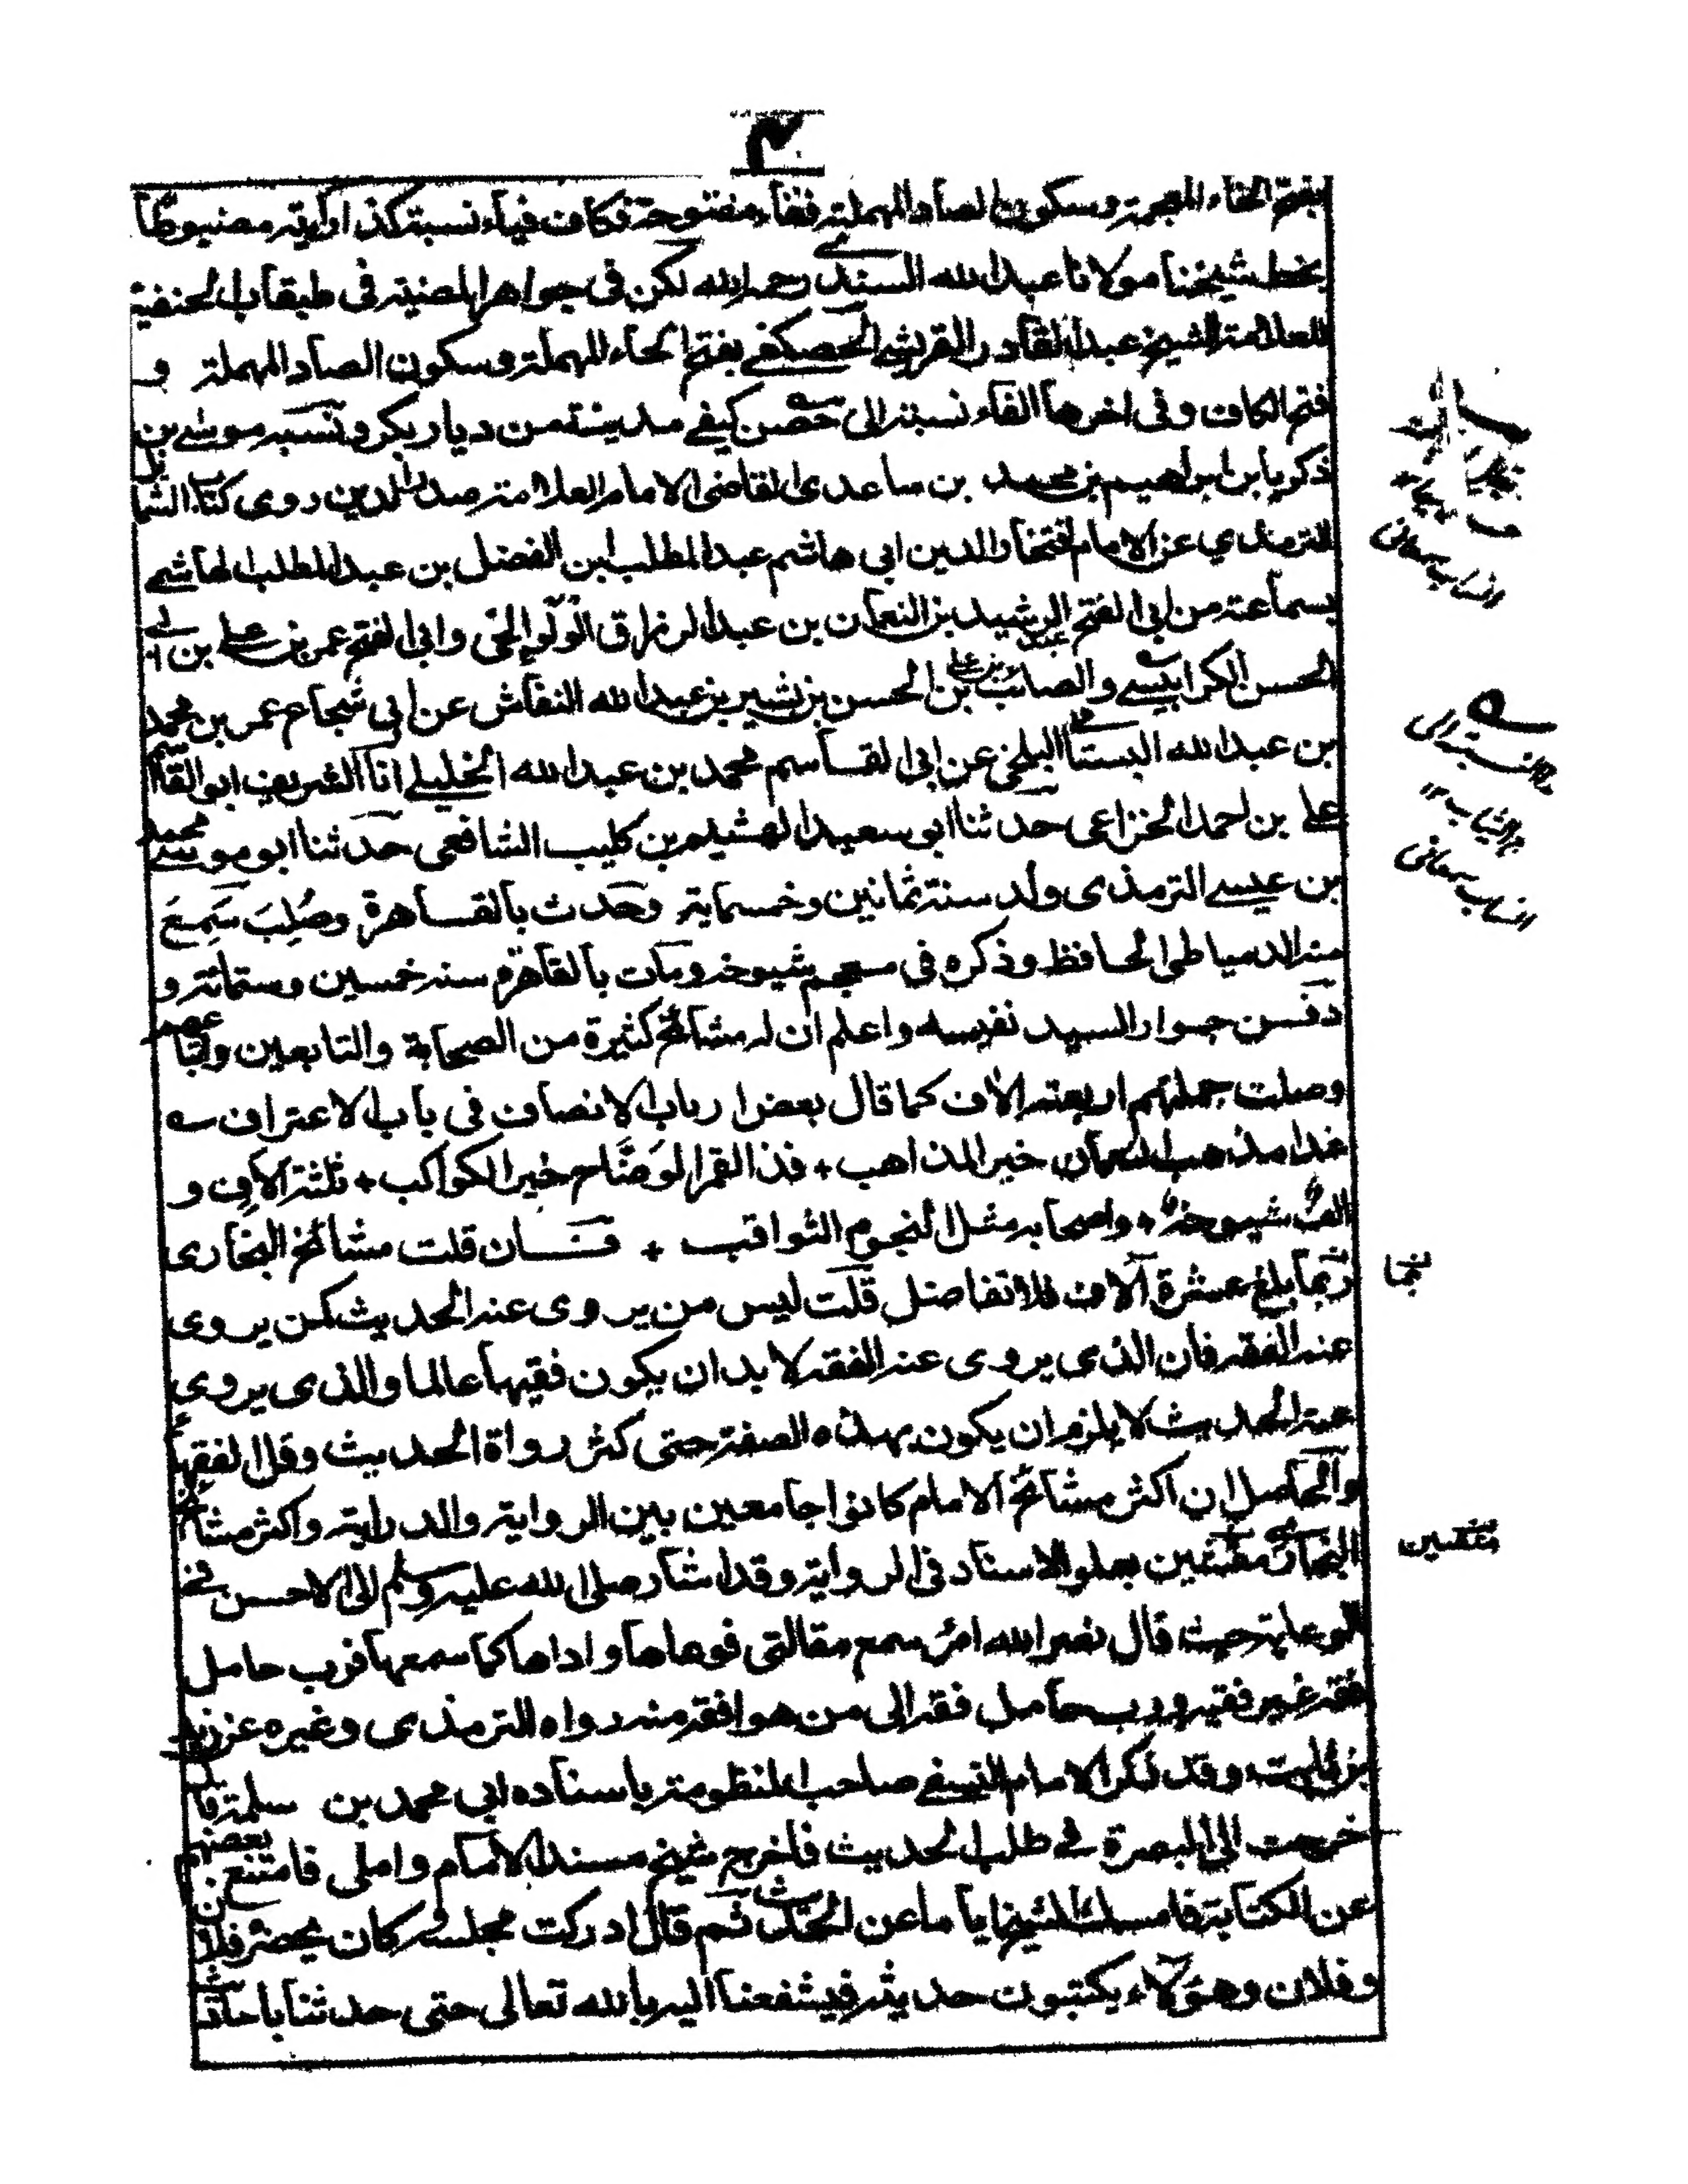 بفتح الخاء المعجمة وسكون الصاد المهملة ففاء مفتوحة فكاف فياء نسبة كذا رأيته مضبوطاً
بخط شيخنا مولانا عبد الله السندي رحمه الله لكن فى جواهر المضية فى طبقات الحنفية
للعلامة الشيخ عبد القادر القرشي الحصكفي بفتح الحاء المهملة وسكون الصاد المهملة و
فتح الكاف وفى اخرها الفاء نسبة الى حصن كيفي مدينة من ديار بكر ونسبه موسى بن
ذكريا بن ابراهيم بن محمد بن ساعدى القاضى الامام العلامة صدر الدين روى كتاب الشمائل
الترمذي عن الامام افتخار الدين ابى هاشم عبد المطلب ابن الفضل بن عبد المطلب الهاشمي
بسماعته من ابى الفتح عبد الرشيد بن النعمان بن عبد الرزاق الولوالجى وابى الفتح عمر بن على بن ابى
الحسن الكرابيسي والصائب بن على بن الحسن بن بشير بن عبد الله النقاش عن ابى شجاع عمر بن محمد
بن عبد الله البستامى البلخى عن ابى القاسم محمد بن عبد الله الخليلي انا الشريف ابو القاسم
على بن احمد الخزاعى حدثنا ابو سعيد الهشيم بن كليب الشافعى حدثنا ابو موسى محمد
بن عيسى الترمذى ولد سنة ثمانين وخمسماية وحدث بالقاهرة وصُلِبَ سَمِعَ
منه الدمياطى الحافظ وذكره فى معجم شيوخه ومات بالقاهرة سنه خمسين وستمائة و
دفن جوار السيد نفيسه واعلم ان له مشائخ كثيرة من الصحابة والتابعين واتباعهم
وصلت جملتهم اربعة الاف كما قال بعض ارباب الانصاف فى باب الاعتراف ؎
غدا مذهب النعمان خير المذاهب + فذا القمر الوَضَّاح خير الكواكب + ثلثة الافٍ و
الفٌ شيوخهٗ + واصحابه مثل النجوم الثواقب + فان قلت مشائخ البخارى
ربما بلغ عشرة آلاف فلا تفاضل قلت ليس من يروى عنه الحديث كمن يروى
عنه الفقه فان الذى يروى عنه الفقه لا بد ان يكون فقيها عالما والذى يروى
عنه الحديث لا يلزم ان يكون بهذه الصفة حتى كثر رواة الحديث وقل الفقهاء
والحاصل ان اكثر مشائخ الامام كانوا جامعين بين الرواية والدراية واكثر مشائخ
البخارى مقتنعين بعلو الاسناد فى الرواية وقد اشار صلى الله عليه وسلم الى الاحسن فى
الوعاية حيث قال نضر الله امرأ سمع مقالتى فوعاها واداها كما سمعها فرب حامل
فقه غير فقيه ورب حامل فقه الى من هو افقه منه رواه الترمذى وغيره عن زيد
بن ثابت وقد ذكر الامام النسفي صاحب المنظومة باسناده ابى محمد بن سلمة قال
خرجت الى البصرة فى طلب الحديث فاخرج شيخ مسند الامام واملى فامتنع بعضهم
عن الكتابة فامسك الشيخ اياما عن الحديث ثم قال ادركت مجلسه وكان يحضره فلان
وفلان وهؤلاء يكتبون حديثه فيشفعنا اليه بالله تعالى حتى حدثنا
انساب سمعانى
انساب سمعانى